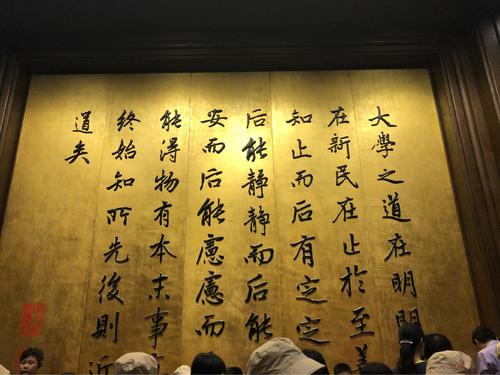 大學之道在明明
在新民在止於至善
知止而后有定定
后能靜靜而后能
安而后能慮慮而
能得物有本末事有
終始知所先後則近
道矣